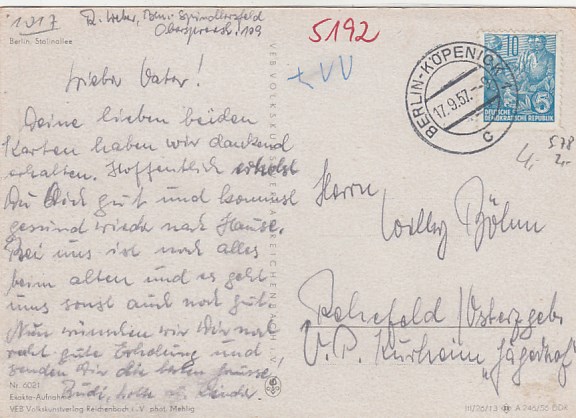 1017
R. Weber, Bln.-Spindlersfeld
Oberspreestr. 109
Berlin, Stalinallee
5192
Lieber Vater!
Deine lieben beiden
Karten haben wir dankend
erhalten. Hoffentlich erholst
Du Dich gut und kommst
gesund wieder nach Hause.
Bei uns ist noch alles
beim alten und es geht
uns sonst auch noch gut.
Nun wünschen wir Dir noch
recht gute Erholung und
senden Dir die besten Grüsse
Rudi,
Kinder.
Nr. 6021
Exakta-Aufnahme
VEB Volkskunstverlag Reichenbach i. V. phot. Mehlig
VEB VOLKSKUNSTVERLAG REICHENBACH I. V.
BERLIN-KÖPENICK
17.9.57.
c
DEUTSCHE
DEMOKRATISCHE REPUBLIK
5
578
4,-
2,-
Herrn
Willy Böhm
Rehefeld/Osterzgeb.
Kurheim "Jägerhof"
III/26/13 A 245/56 DDR